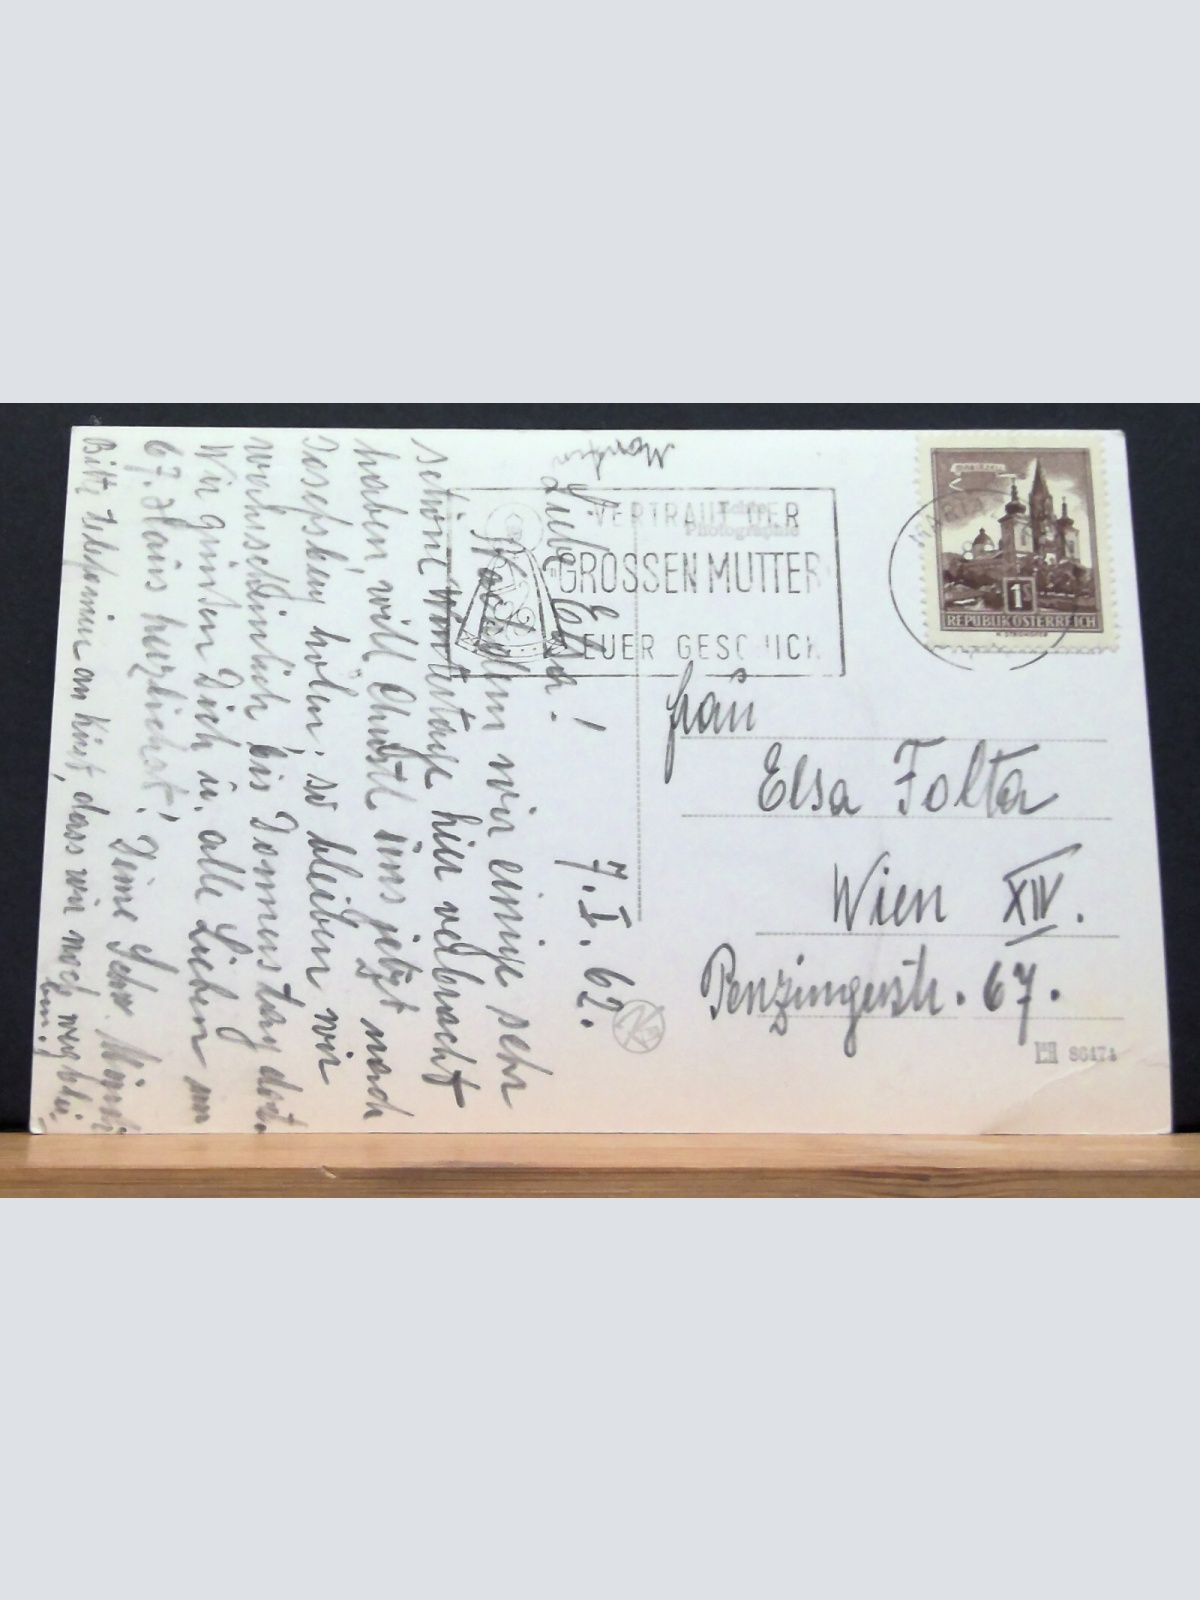 7. I. 62.
Liebe
Nachdem wir einige sehr
schöne Wintertage hier verbracht
haben, will Christl uns jetzt nach
Josefsberg holen; so bleiben wir
wahrscheinlich bis Donnerstag dort.
Wir grüssen Dich u. alle Lieben im
67. Haus herzlichst! Deine Schw.
Bitte dass wir noch wegblei-
ben!
VERTRAUT DER
GROSSEN MUTTER
EUER GESCHICK
Echte
Photographie
MARIAZELL
1S
REPUBLIK ÖSTERREICH
Frau
Elsa Folta
Wien XIV.
Penzingerstr. 67.
86474